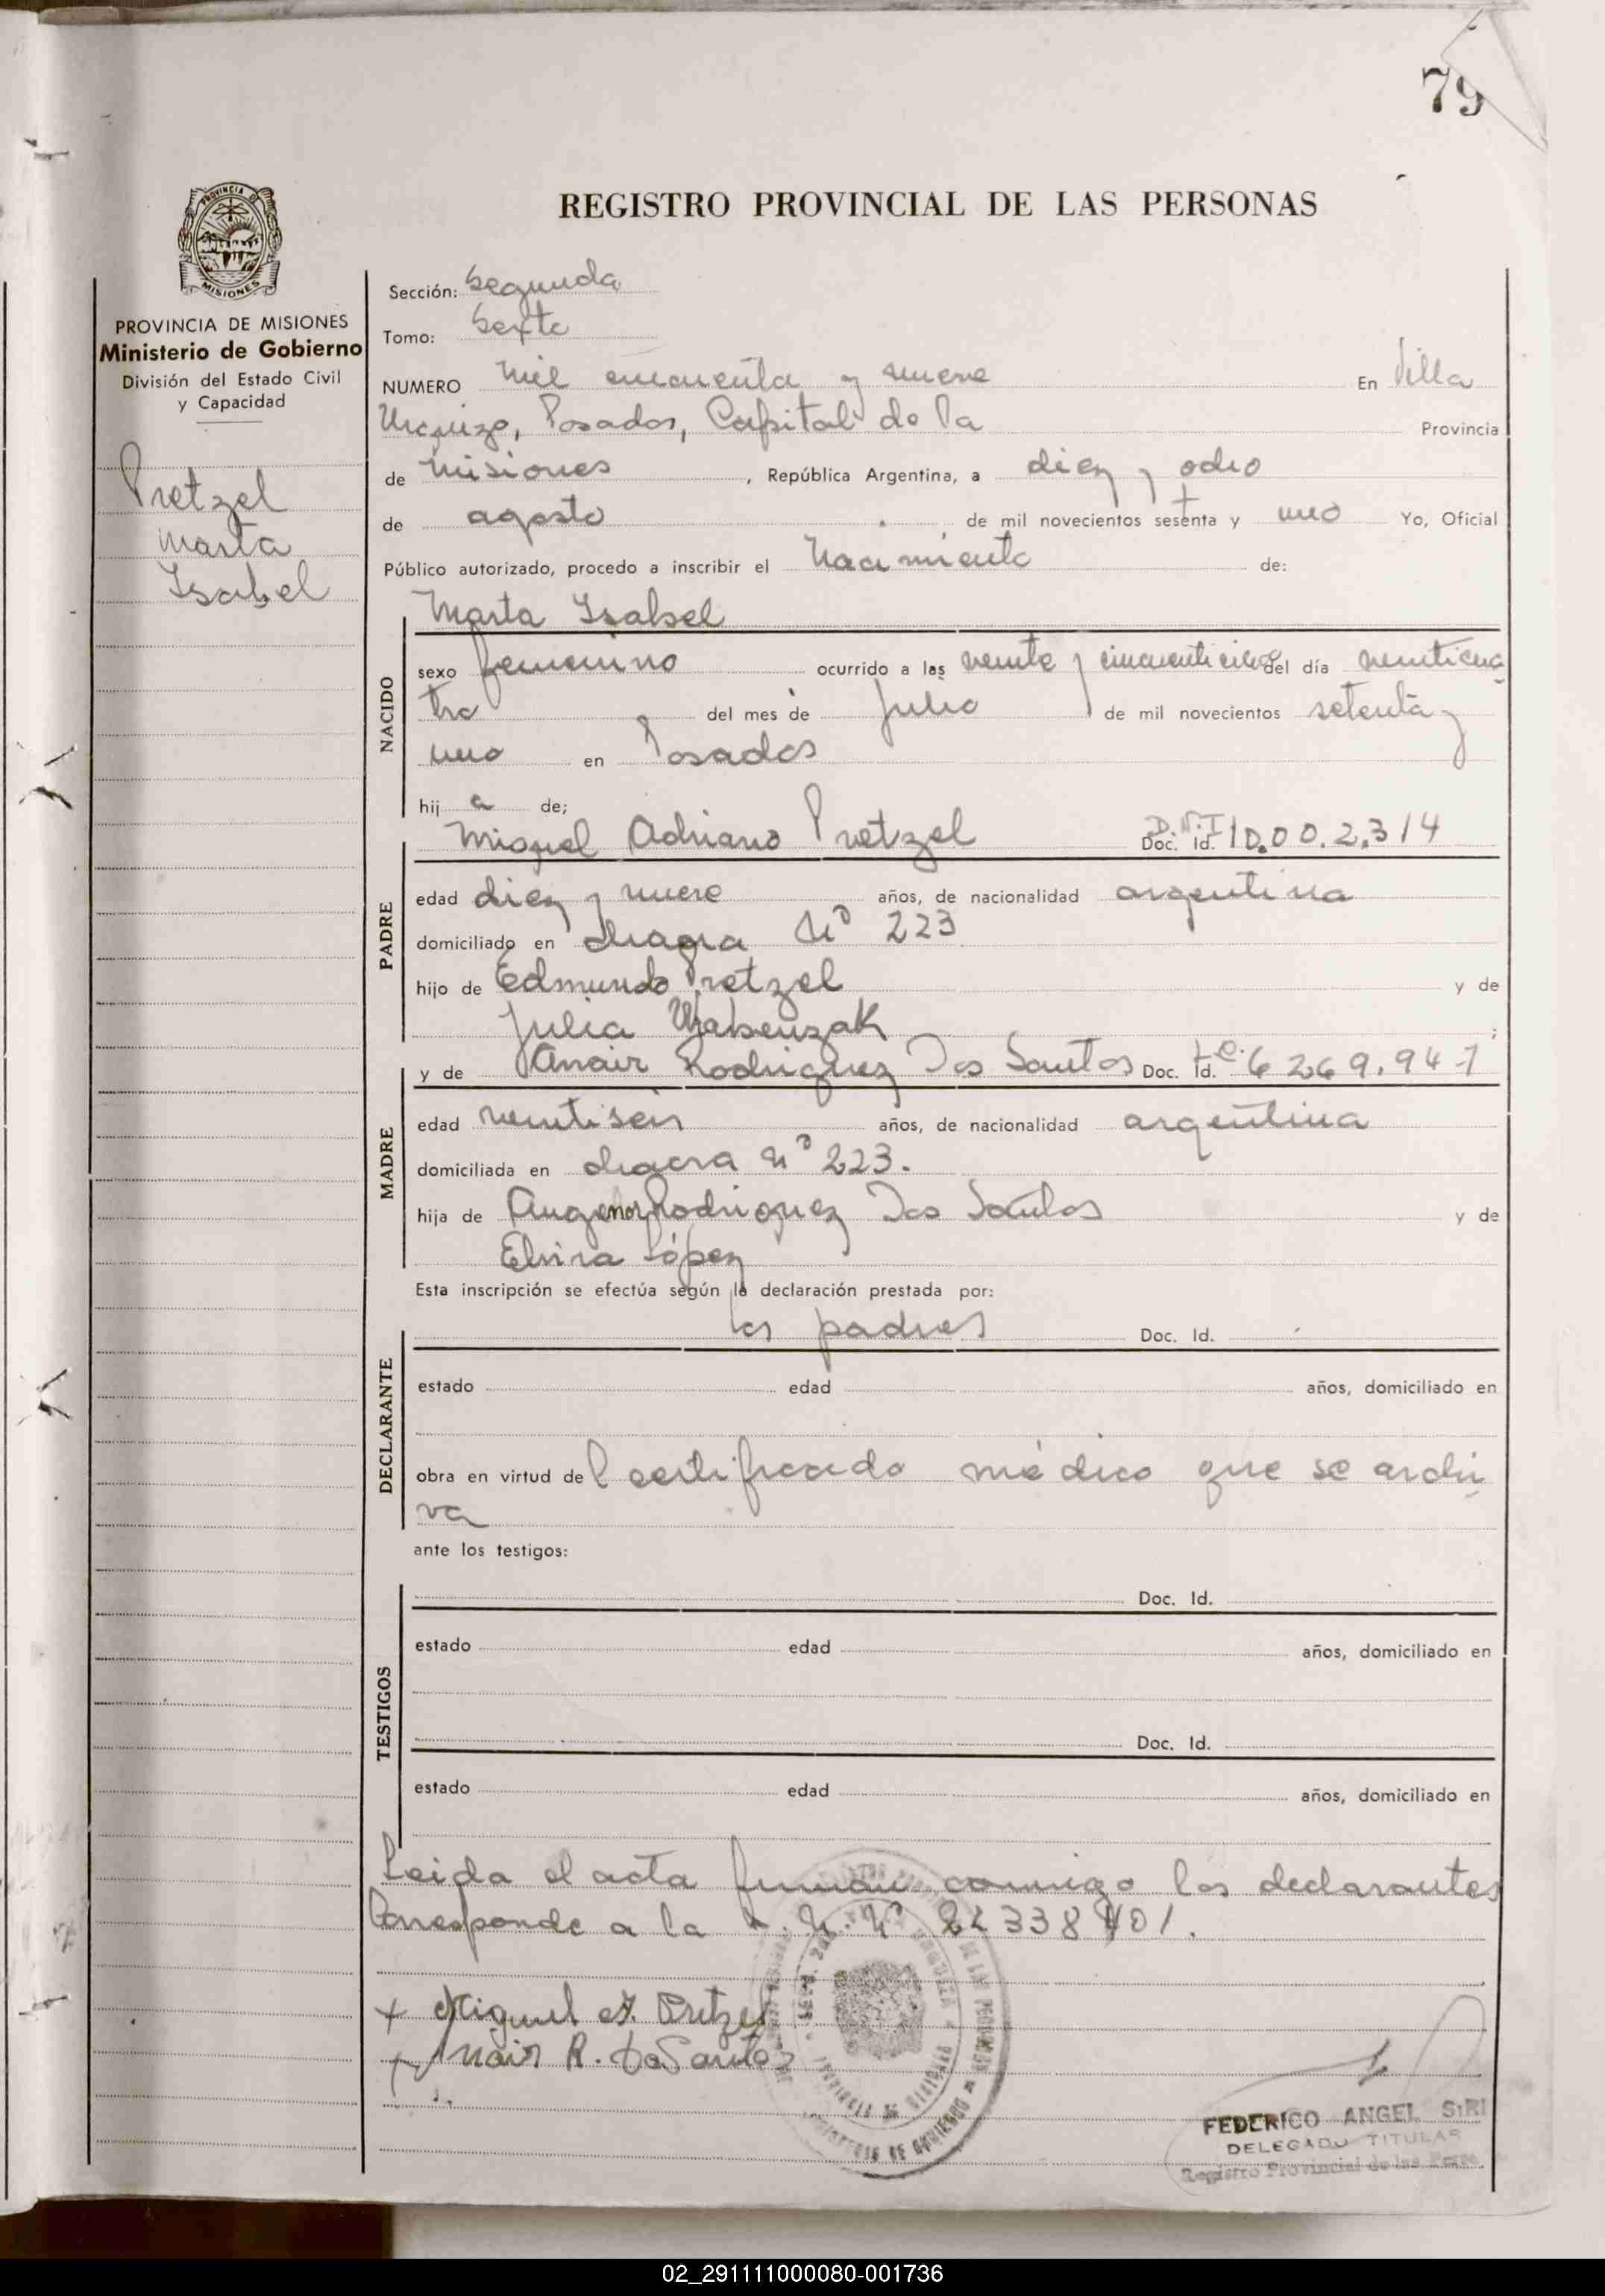 79
REGISTRO PROVINCIAL DE LAS PERSONAS
PROVINCIA DE
MISIONES
PROVINCIA DE MISIONES
Ministerio de Gobierno
División del Estado Civil
y Capacidad
Pretzel
Marta
Isabel
Sección: Segunda
Tomo: Sexto
NUMERO Mil cincuenta y nueve En Villa
Urquiza, Posadas, Capital de la Provincia
de Misiones, República Argentina, a diez y ocho
de agosto de mil novecientos sesenta y uno Yo, Oficial
Público autorizado, procedo a inscribir el Nacimiento de:
Marta Isabel
NACIDO
sexo femenino ocurrido a las veinte y cincuenticinco del día veinticua
tro del mes de Julio de mil novecientos setenta y
uno en Posadas
hij a de;
Miguel Adriano Pretzel D.N.I Doc. Id. 10.00.2.314
PADRE
edad diez y nueve años, de nacionalidad argentina
domiciliado en chagra Nº 223
hijo de Edmundo Pretzel y de
Julia ;
y de Anair Rodriguez Dos Santos Doc. Id. L.C. 6269.947
MADRE
edad veintiseis años, de nacionalidad argentina
domiciliada en chacra Nº 223.
hija de Rodriguez Dos Santos y de
Elvira López
Esta inscripción se efectúa según la declaración prestada por:
los padres Doc. Id.
DECLARANTE
estado edad años, domiciliado en
obra en virtud del certificado médico que se archi
va
ante los testigos:
Doc. Id.
TESTIGOS
estado edad años, domiciliado en
Doc. Id.
estado edad años, domiciliado en
Leida el acta firman conmigo los declarantes
Corresponde a la Nº 338401.
+ Miguel A. Pretzel
+ Anair R. Do Santos
FEDERICO ANGEL SIRI
DELEGADO TITULAR
Registro Provincial de las Pers.
02_291111000080-001736